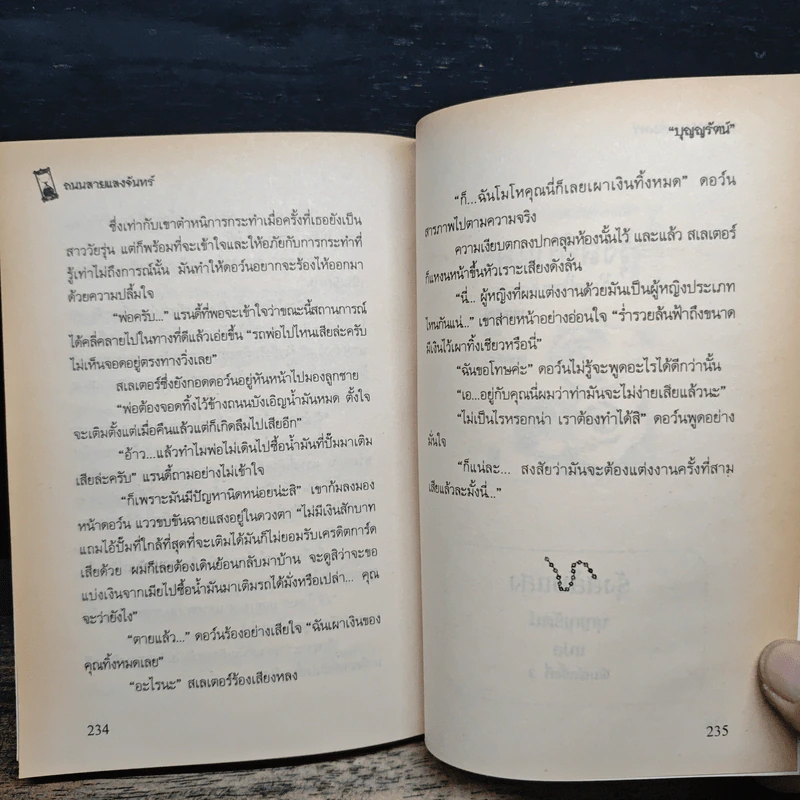 ถนนสายแสงจันทร์
ซึ่งเท่ากับเขาตำหนิการกระทำเมื่อครั้งที่เธอยังเป็น
สาววัยรุ่น แต่ก็พร้อมที่จะเข้าใจและให้อภัยกับการกระทำที่
รู้เท่าไม่ถึงการณ์นั้น มันทำให้ดอว์นอยากจะร้องไห้ออกมา
ด้วยความปลื้มใจ
“พ่อครับ...” แรนดี้ที่พอจะเข้าใจว่าขณะนี้สถานการณ์
ได้คลี่คลายไปในทางที่ดีแล้วเอ่ยขึ้น “รถพ่อไปไหนเสียล่ะครับ
ไม่เห็นจอดอยู่ตรงทางวิ่งเลย”
สเลเตอร์ซึ่งยังกอดดอว์นอยู่หันหน้าไปมองลูกชาย
“พ่อต้องจอดทิ้งไว้ข้างถนนบังเอิญน้ำมันหมด ตั้งใจ
จะเติมตั้งแต่เมื่อคืนแล้วแต่ก็เกิดลืมไปเสียอีก”
“อ้าว...แล้วทำไมพ่อไม่เดินไปซื้อน้ำมันที่ปั๊มมาเติม
เสียล่ะครับ” แรนดี้ถามอย่างไม่เข้าใจ
“ก็เพราะมันมีปัญหานิดหน่อยน่ะสิ” เขาก้มลงมอง
หน้าดอว์น แววขบขันฉายแสงอยู่ในดวงตา “ไม่มีเงินสักบาท
แถมไอ้ปั๊มที่ใกล้ที่สุดที่จะเติมได้มันก็ไม่ยอมรับเครดิตการ์ด
เสียด้วย ผมก็เลยต้องเดินย้อนกลับมาบ้าน จะดูสิว่าจะขอ
แบ่งเงินจากเมียไปซื้อน้ำมันมาเติมรถได้มั่งหรือเปล่า... คุณ
จะว่ายังไง”
“ตายแล้ว...” ดอว์นร้องอย่างเสียใจ “ฉันเผาเงินของ
คุณทิ้งหมดเลย”
“อะไรนะ” สเลเตอร์ร้องเสียงหลง
234
“บุญญรัตน์”
“ก็...ฉันโมโหคุณนี่ก็เลยเผาเงินทิ้งหมด” ดอว์น
สารภาพไปตามความจริง
ความเงียบตกลงปกคลุมห้องนั้นไว้ และแล้ว สเลเตอร์
ก็แหงนหน้าขึ้นหัวเราะเสียงดังลั่น
“นี่... ผู้หญิงที่ผมแต่งงานด้วยมันเป็นผู้หญิงประเภท
ไหนกันแน่...” เขาส่ายหน้าอย่างอ่อนใจ “ร่ำรวยล้นฟ้าถึงขนาด
มีเงินไว้เผาทิ้งเชียวหรือนี่”
“ฉันขอโทษค่ะ” ดอว์นไม่รู้จะพูดอะไรได้ดีกว่านั้น
“เอ...อยู่กับคุณนี่ผมว่าท่ามันจะไม่ง่ายเสียแล้วนะ”
“ไม่เป็นไรหรอกน่า เราต้องทำได้สิ” ดอว์นพูดอย่าง
มั่นใจ
“ก็แน่ละ... สงสัยว่ามันจะต้องแต่งงานครั้งที่สาม
เสียแล้วละมั้งนี่...”
235